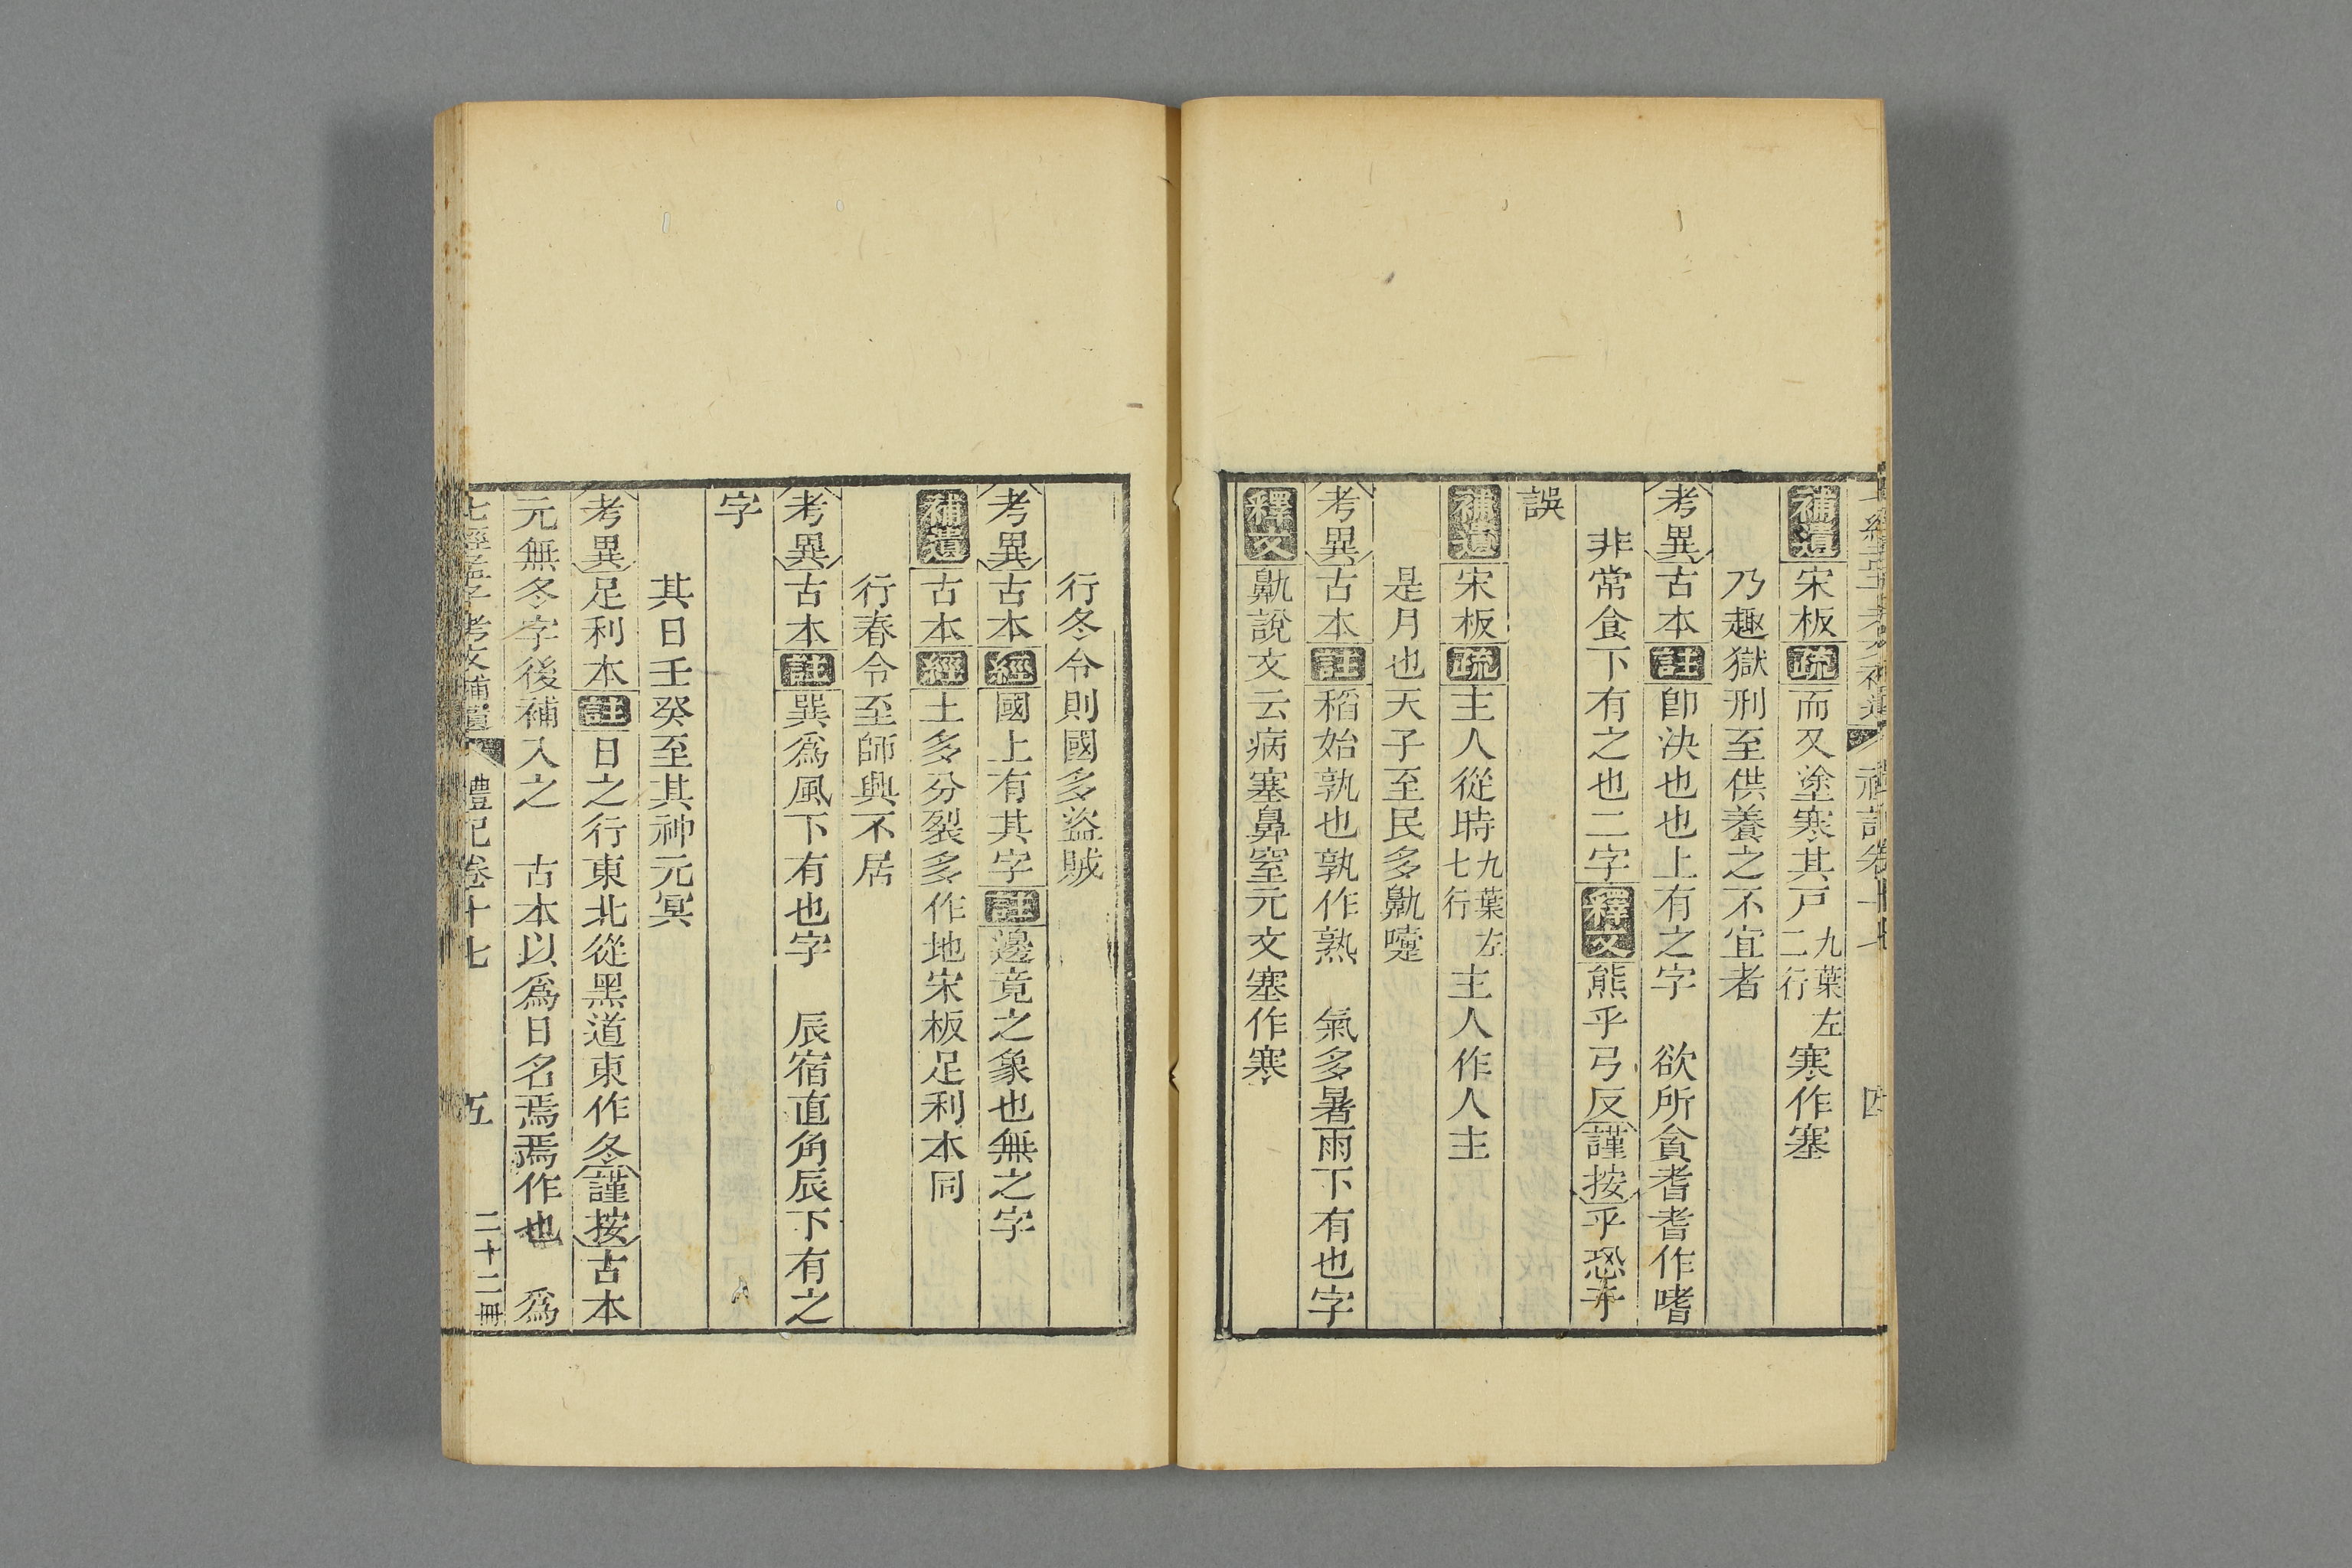 七經孟子考文補遺 禮記卷十七 四
補遺宋板疏而又塗寒其戸九葉左二行寒作塞
乃趣獄刑至供養之不宜者
考異古本註卽決也也上有之字 欲所貪耆耆作嗜
非常食下有之也二字釋文熊乎弓反謹按乎恐手
誤
補遺宋板疏主人從時九葉左七行主人作人主
是月也天子至民多鼽嚏
考異古本註稻始孰也孰作熟 氣多暑雨下有也字
釋文鼽說文云病塞鼻窒元文塞作寒
行冬令則國多盜賊
考異古本經國上有其字註邊竟之象也無之字
補遺古本經土多分裂多作地宋板足利本同
行春令至師興不居
考異古本註巽爲風下有也字 辰宿直角辰下有之
字
其日壬癸至其神元冥
考異足利本註日之行東北從黑道東作冬謹按古本
元無冬字後補入之 古本以爲日名焉焉作也 爲
七經孟子考文補遺 禮記卷十七 五 二十二冊